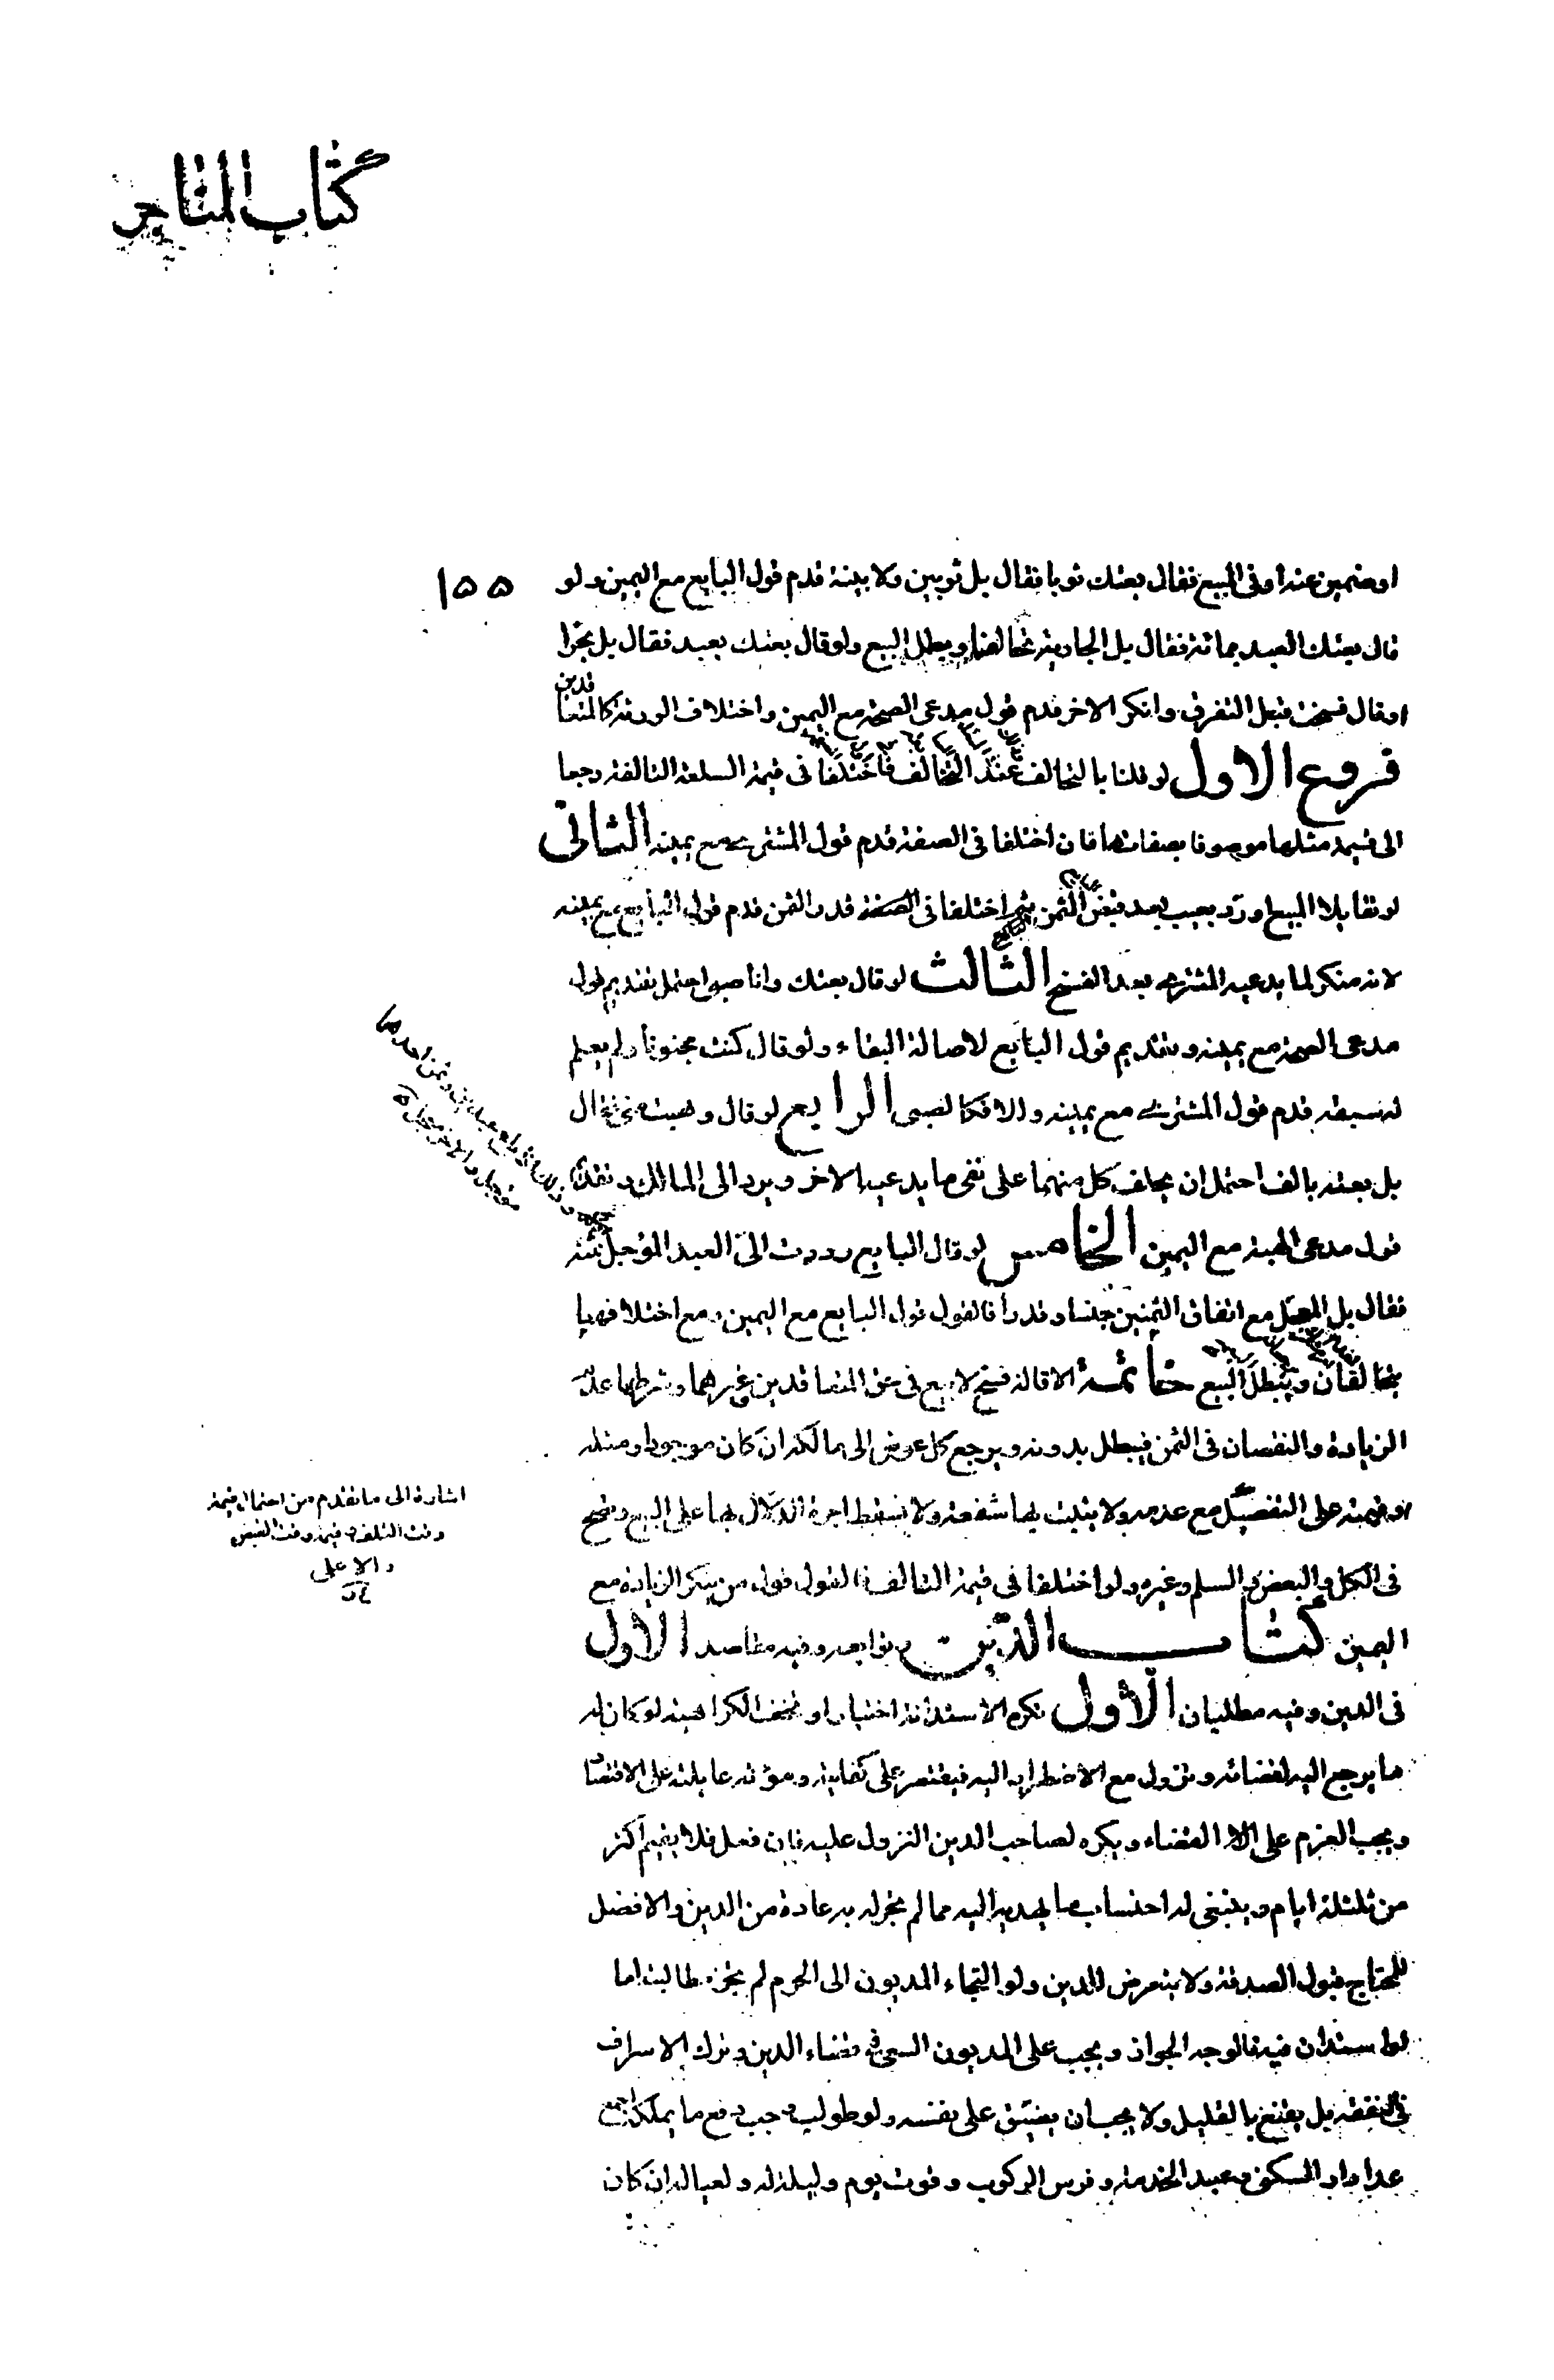 كتاب المتاجر
١٥٥
او ضمين عنه او فى المبيع فقال بعتك ثوبا فقال بل ثوبين ولا بينة قدم قول البايع مع اليمين ولو
قال بعتك العبد بمائة فقال بل الجارية تحالفا ويبطل البيع ولو قال بعتك بعبد فقال بل بحر
او قال فسخت قبل التفرق وانكر الاخر قدم قول مدعى الصحة مع اليمين واختلاف الورثة كالمتعاقدين
فروع الاول لو قلنا بالتحالف عند التخالف فاختلفا فى قيمة السلعة التالفة رجعا
الى قيمة مثلها موصوفا بصفاتها فان اختلفا فى الصفة قدم قول المشترى مع يمينه الثانى
لو تقايلا المبيع او رد بعيب بعد قبض الثمن ثم اختلفا فى قدر الثمن قدم قول البايع مع يمينه
لانه منكر لما يدعيه المشترى بعد الفسخ الثالث لو قال بعتك وانا صبى احتمل تقديم قول
مدعى الصحة مع يمينه وتقديم قول البايع لاصالة البقاء ولو قال كنت مجنونا ولم يعلم
له سبقه قدم قول المشترى مع يمينه والا فكالصبى الرابع لو قال وهبت منى فقال
بل بعته بالف احتمل ان يحلف كل منهما على نفى ما يدعيه الاخر ويرد الى المالك وتقديم
قول مدعى الهبة مع اليمين الخامس لو قال البايع رددت الى العبد المؤجل ثمنه
فقال بل المعجل مع اتفاق الثمنين جنسا وقدرا فالقول قول البايع مع اليمين ومع اختلافهما
يتحالفان ويبطل البيع خاتمة الاقالة فسخ لا بيع فى حق المتعاقدين وغيرهما وشرطها عدم
الزيادة والنقصان فى الثمن فيبطل بدونه ويرجع كل عوض الى مالكه ان كان موجودا ومثله
او قيمته على التفصيل مع عدمه ولا يثبت بها شفعة ولا تسقط اجرة الدلال بها على البيع وتصح
فى الكل والبعض والسلم وغيره ولو اختلفا فى قيمة التالف فالقول قول من ينكر الزيادة مع
اليمين كتاب الدين وتوابعه وفيه مقاصد الاول
فى الدين وفيه مطلبان الاول تكره الاستدانة اختيارا وتخف الكراهية لو كان له
ما يرجع اليه لقضائه وتزول مع الاضطرار اليه فيقتصر على كفايته ومؤنة عايلته على الاقتصاد
ويجب العزم على القضاء ويكره لصاحب الدين النزول عليه فان فعل فلا يقيم اكثر
من ثلثة ايام وينبغى له احتساب ما يهديه اليه مما لم يجر له به عادة من الدين والافضل
للمحتاج قبول الصدقة ولا يتعرض للدين ولو التجاء المديون الى الحرم لم يجز مطالبته اما
لو استدان فيه فالوجه الجواز ويجب على المديون السعى فى قضاء الدين وترك الاسراف
فى النفقة بل يقنع بالقليل ولا يجب ان يضيق على نفسه ولو طولب وجب دفع ما يملكه اجمع
عدا دار السكنى وعبد الخدمة وفرس الركوب وقوت يوم وليلة له ولعياله ان كان
اشارة الى ما تقدم من احتمال قيمة
وقت التلف وقيمة وقت القبض
والاعلى